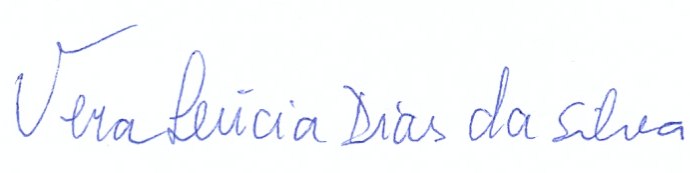 Vera Lúcia Dias da Silva